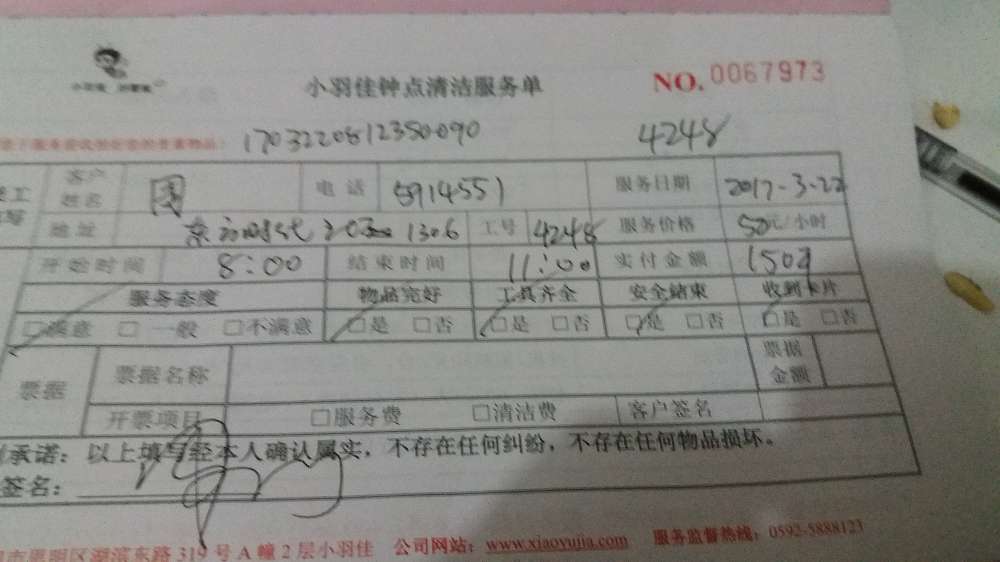 小羽佳钟点清洁服务单 NO. 0067973
1703220812350090 4248
客户姓名 电话 5914551 服务日期 2017-3-22
地址 1306 工号 4248 服务价格 50元/小时
开始时间 8:00 结束时间 11:00 实付金额 150
服务态度 物品完好 工具齐全 安全结束 收到卡片
□满意 □一般 □不满意 □是 □否 □是 □否 □是 □否 □是 □否
票据 票据名称 票据金额
开票项目 □服务费 □清洁费 客户签名
承诺：以上填写经本人确认属实，不存在任何纠纷，不存在任何物品损坏。
签名：
市思明区湖滨东路319号A幢2层小羽佳 公司网站：www.xiaoyujia.com 服务监督热线：0592-5888123